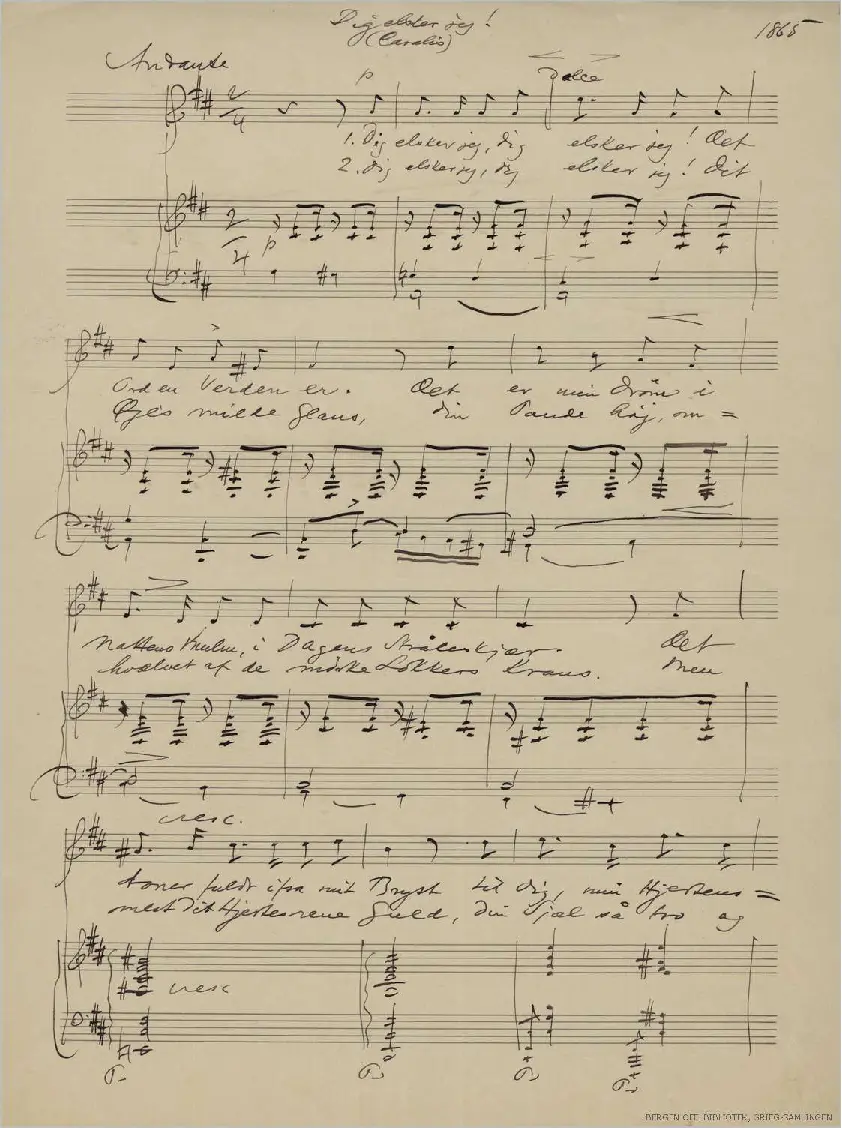 Dig elsker jeg!
(Caralis)
1865
Andante
p
Dolce
1. Dig elsker jeg, dig elsker jeg! Det
2. Dig elsker jeg, dig elsker jeg! Dit
2/4
p
Ord en Verden er. Det er min Drøm i
Øjes milde Glans, din Pande høj, om=
Nattens Mulm, i Dagens Stråleskjær. Det
hvælvet af de mørke Lokkers Krans. Men
cresc.
toner fuldt ifra mit Bryst til dig, min Hjertens=
mest dit Hjertes rene Guld, din Sjæl så tro og
cresc
BERGEN OFF. BIBLIOTEK, GRIEG-SAMLINGEN